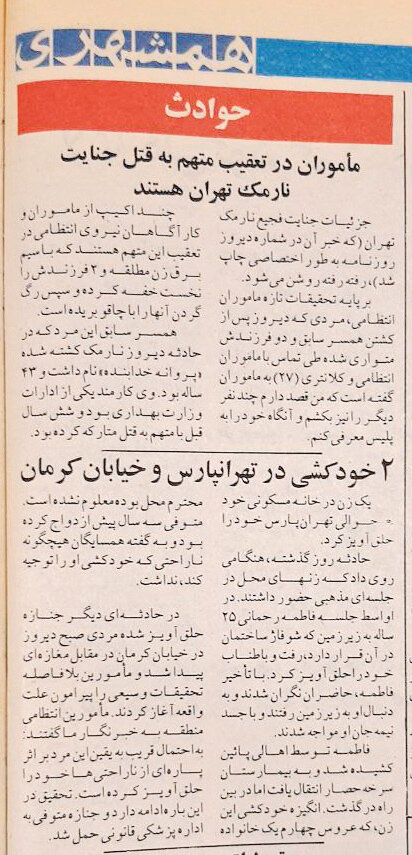 همشهری
حوادث
مأموران در تعقیب متهم به قتل جنایت
نارمک تهران هستند
جزئیات جنایت فجیع نارمک
تهران (که خبر آن در شماره دیروز
روزنامه به طور اختصاصی چاپ
شد)، رفته رفته روشن می‌شود.
برپایه تحقیقات تازه ماموران
انتظامی، مردی که دیروز پس از
کشتن همسر سابق و دو فرزندش
متواری شده طی تماس با ماموران
انتظامی و کلانتری (۲۷) به ماموران
گفته است که من قصد دارم چند نفر
دیگر را نیز بکشم و آنگاه خود را به
پلیس معرفی کنم.
چند اکیپ از ماموران و
کارآگاهان نیروی انتظامی در
تعقیب این متهم هستند که با سیم
برق زن مطلقه و ۲ فرزندش را
نخست خفه کرده و سپس رگ
گردن آنها را با چاقو بریده است.
همسر سابق این مرد که در
حادثه دیروز نارمک کشته شده
«پروانه خدابنده» نام داشت و ۴۳
ساله بود. وی کارمند یکی از ادارات
وزارت بهداری بود و شش سال
قبل با متهم به قتل متارکه کرده بود.
۲ خودکشی در تهرانپارس و خیابان کرمان
یک زن در خانه مسکونی خود
حوالی تهران پارس خود را
حلق آویز کرد.
حادثه روز گذشته، هنگامی
روی داد که زنهای محل در
جلسه‌ای مذهبی حضور داشتند. در
اواسط جلسه فاطمه رحمانی ۲۵
ساله به زیر زمین که شوفاژ ساختمان
در آن قرار دارد، رفت و با طناب
خود را حلق آویز کرد. با تأخیر
فاطمه، حاضران نگران شدند و به
دنبال او به زیر زمین رفتند و با جسد
نیمه جان او مواجه شدند.
فاطمه توسط اهالی پائین
کشیده شد و به بیمارستان
سرخه حصار انتقال یافت اما در بین
راه درگذشت. انگیزه خودکشی این
زن، که عروس چهارم یک خانواده
محترم محل بوده معلوم نشده است.
متوفی سه سال پیش ازدواج کرده
بود و به گفته همسایگان هیچگونه
ناراحتی که خودکشی او را توجیه
کند، نداشت.
در حادثه‌ای دیگر جنازه
حلق آویز شده مردی صبح دیروز
در خیابان کرمان در مقابل مغازه‌ای
پیدا شد و مأمورین بلافاصله
تحقیقات وسیعی را پیرامون علت
واقعه آغاز کردند. مأمورین انتظامی
منطقه به خبرنگار ما گفتند:
به احتمال قریب به یقین این مرد بر اثر
پاره‌ای از ناراحتی‌ها خود را
حلق آویز کرده است. تحقیق در
این باره ادامه دارد و جنازه متوفی به
اداره پزشکی قانونی حمل شد.